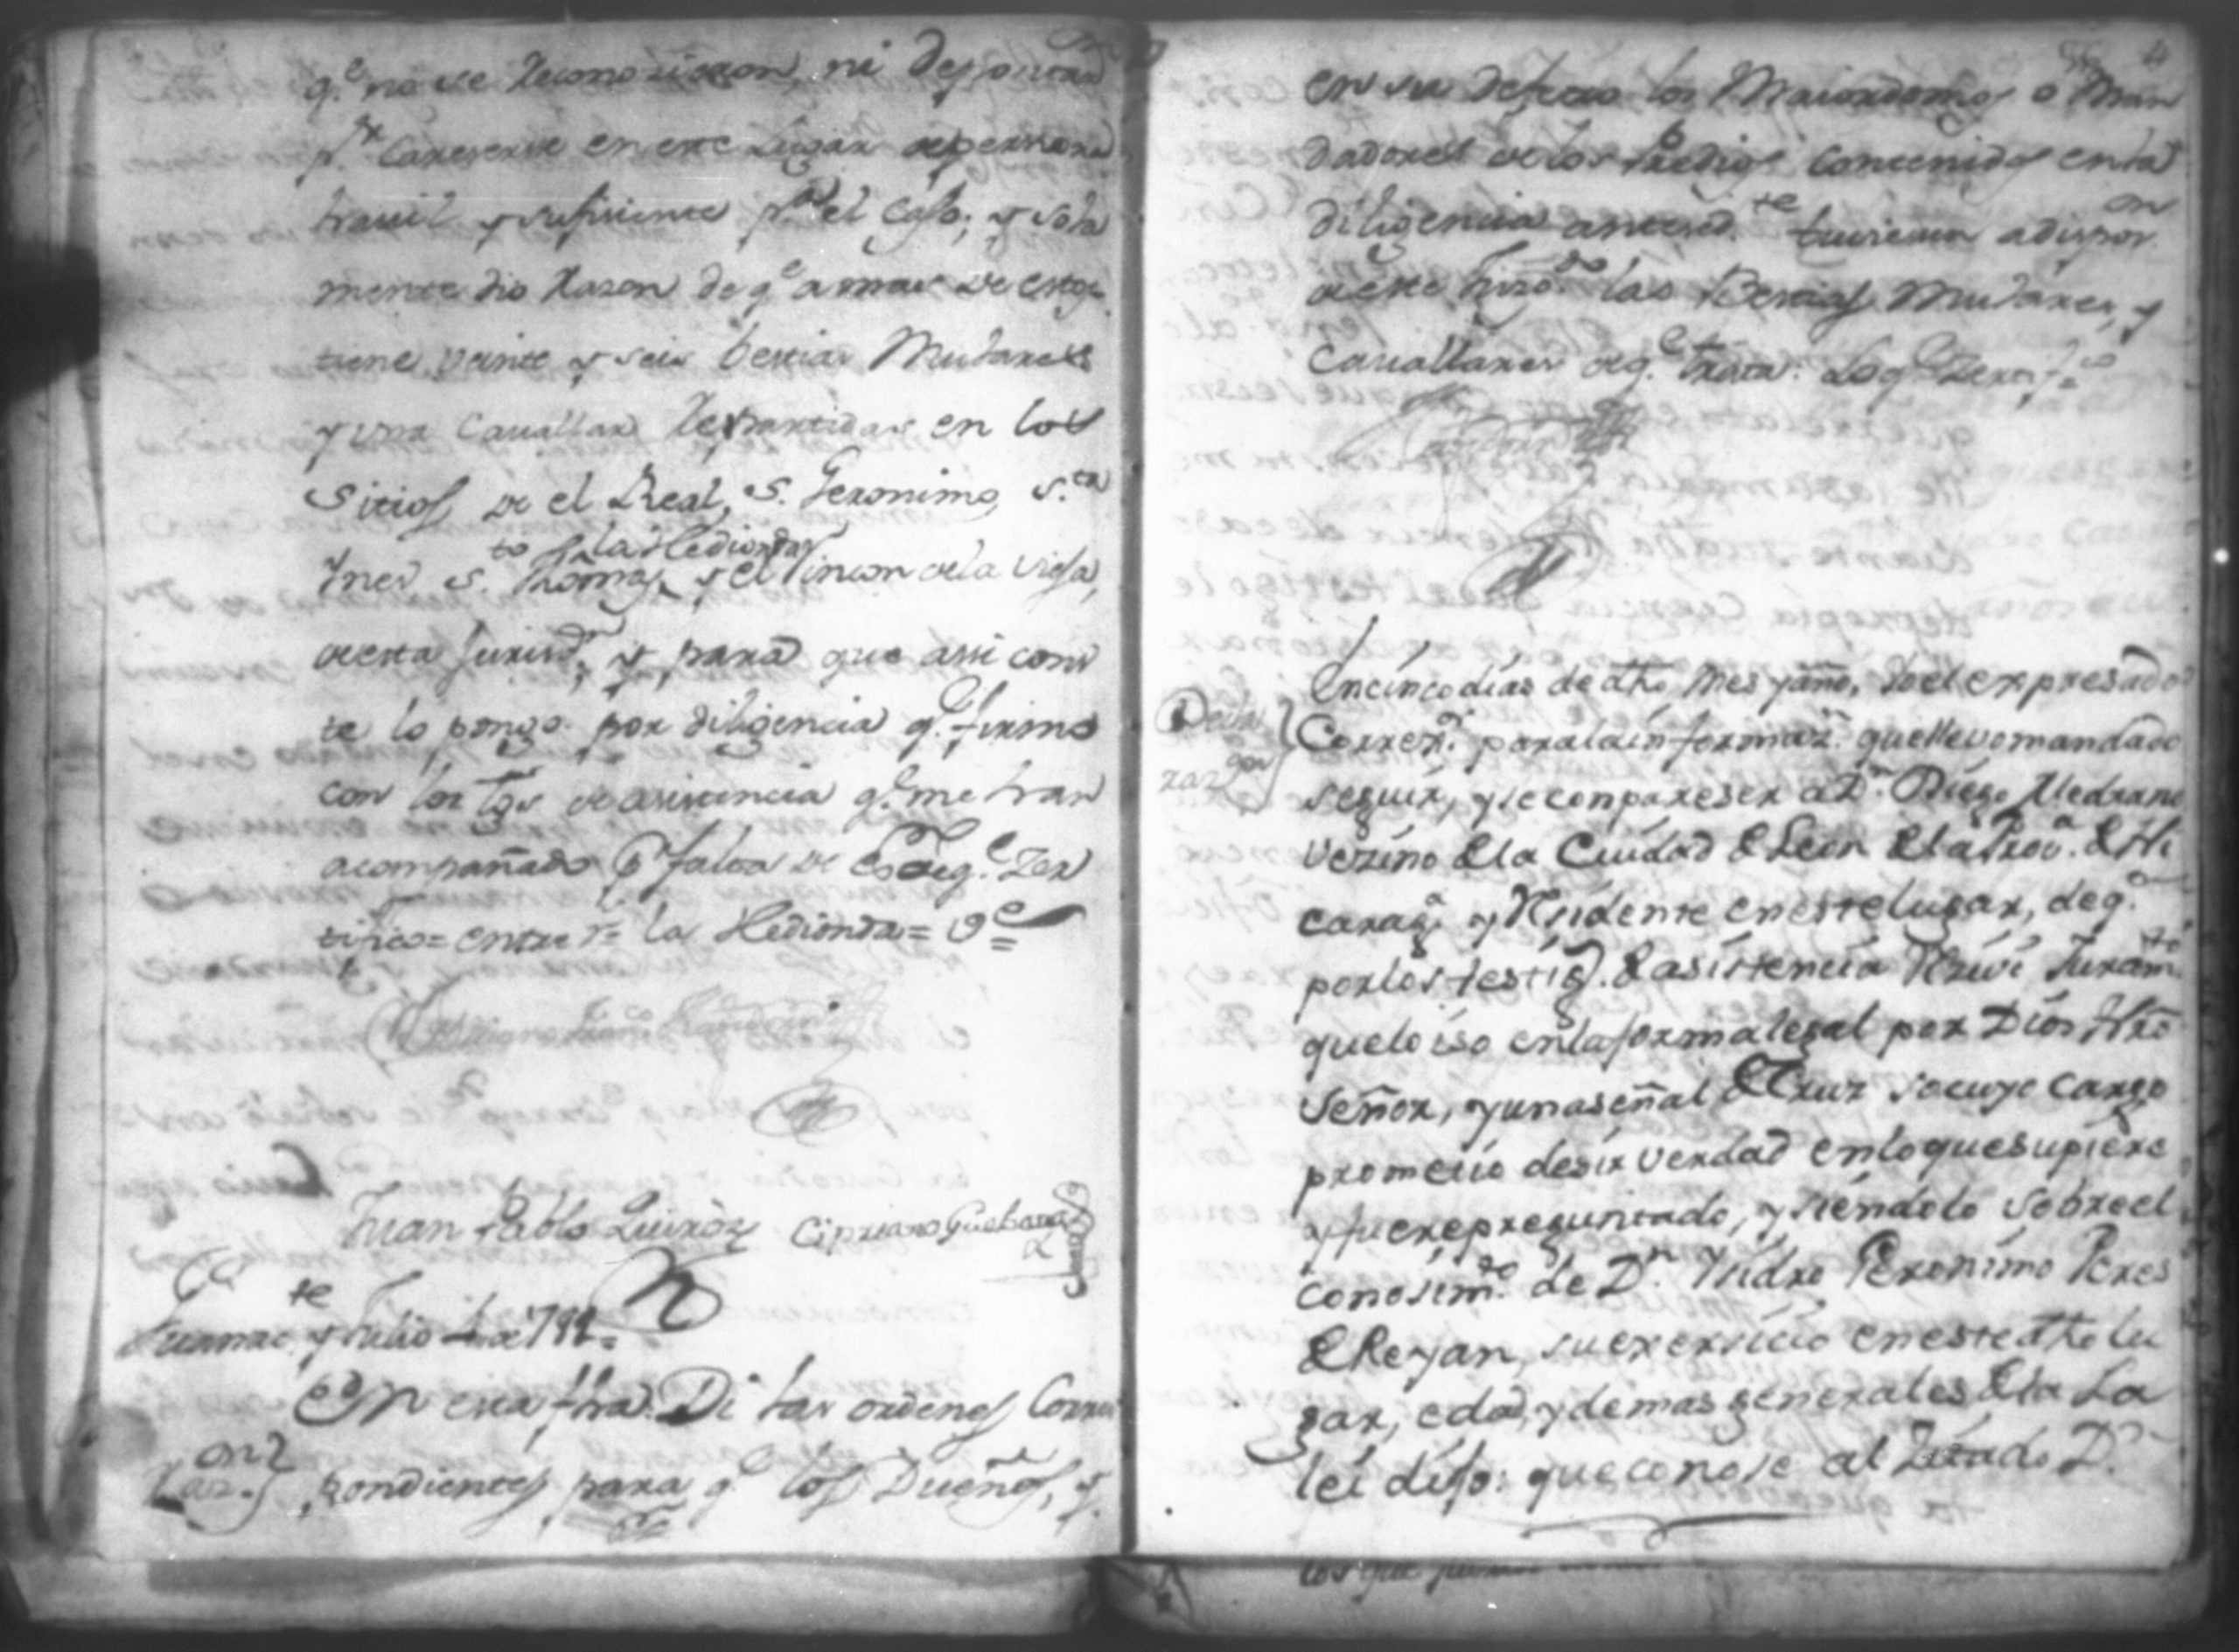 q.e no se reconosieron, ni depositaron
p.r careserse en este Lugar de persona
havil y sufisiente p.a el caso; y sola
mente dio razon de q.e a mas de estas
tiene veinte y seis bestias Mulares
y una Cauallar repartidas en los
Sitios de el Real, S. Geronimo, S.ta
Ynes, S.to Thomas, la Hedionda, y el rincon de la vieja,
de esta Jurisd.n, y para que assi cons
te lo pongo por diligencia q.e firmo
con los tgos de asistencia q.e me han
acompañado p.r falta de Esno de q.e Zer
tifico = entre r.s = la Hedionda = V.e =
Juan Pablo Quiròz Cipriano Guebara
y Julio de 799 =
on
raz.
En esta fha. Di las ordenes Corres
pondientes para q.e los Dueños, y
en su defecto los Maiordomos o Man
dadores de los Predios contenidos en la
diligencia anteced.te tuviesen a dispos.on
de este Juzg.do las Bestias Mulares, y
Cauallares de q.e se trata: Lo q.e Zertif.co =
Decla
razon
En cinco dias de dho Mes y año, Yo el expresado
Correx.or para la informaz.n que llevo mandado
seguir, hise compareser a D.n Diego Medrano
Vezino de la Ciudad de Leon de la Prov.a de Ni
carag.a y Residente en este lugar, de q.n
por los testig.s de asistencia Resivi Juram.to
que lo iso en la forma legal por Dios Nro
Señor, y una señal de Cruz so cuyo cargo
prometio desir verdad en lo que supiere
y fuere preguntado, y siendolo sobre el
conosim.to de D.n Ysidro Geronimo Peres
de Reyan, su exersicio en este dho lu
gar, edad, y demas generales de la La
lei dijo: que conose al Zitado D.n
los que